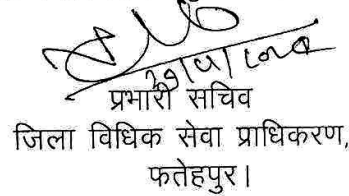 प्रभारी सचिव
जिला विधिक सेवा प्राधिकरण,
फतेहपुर।